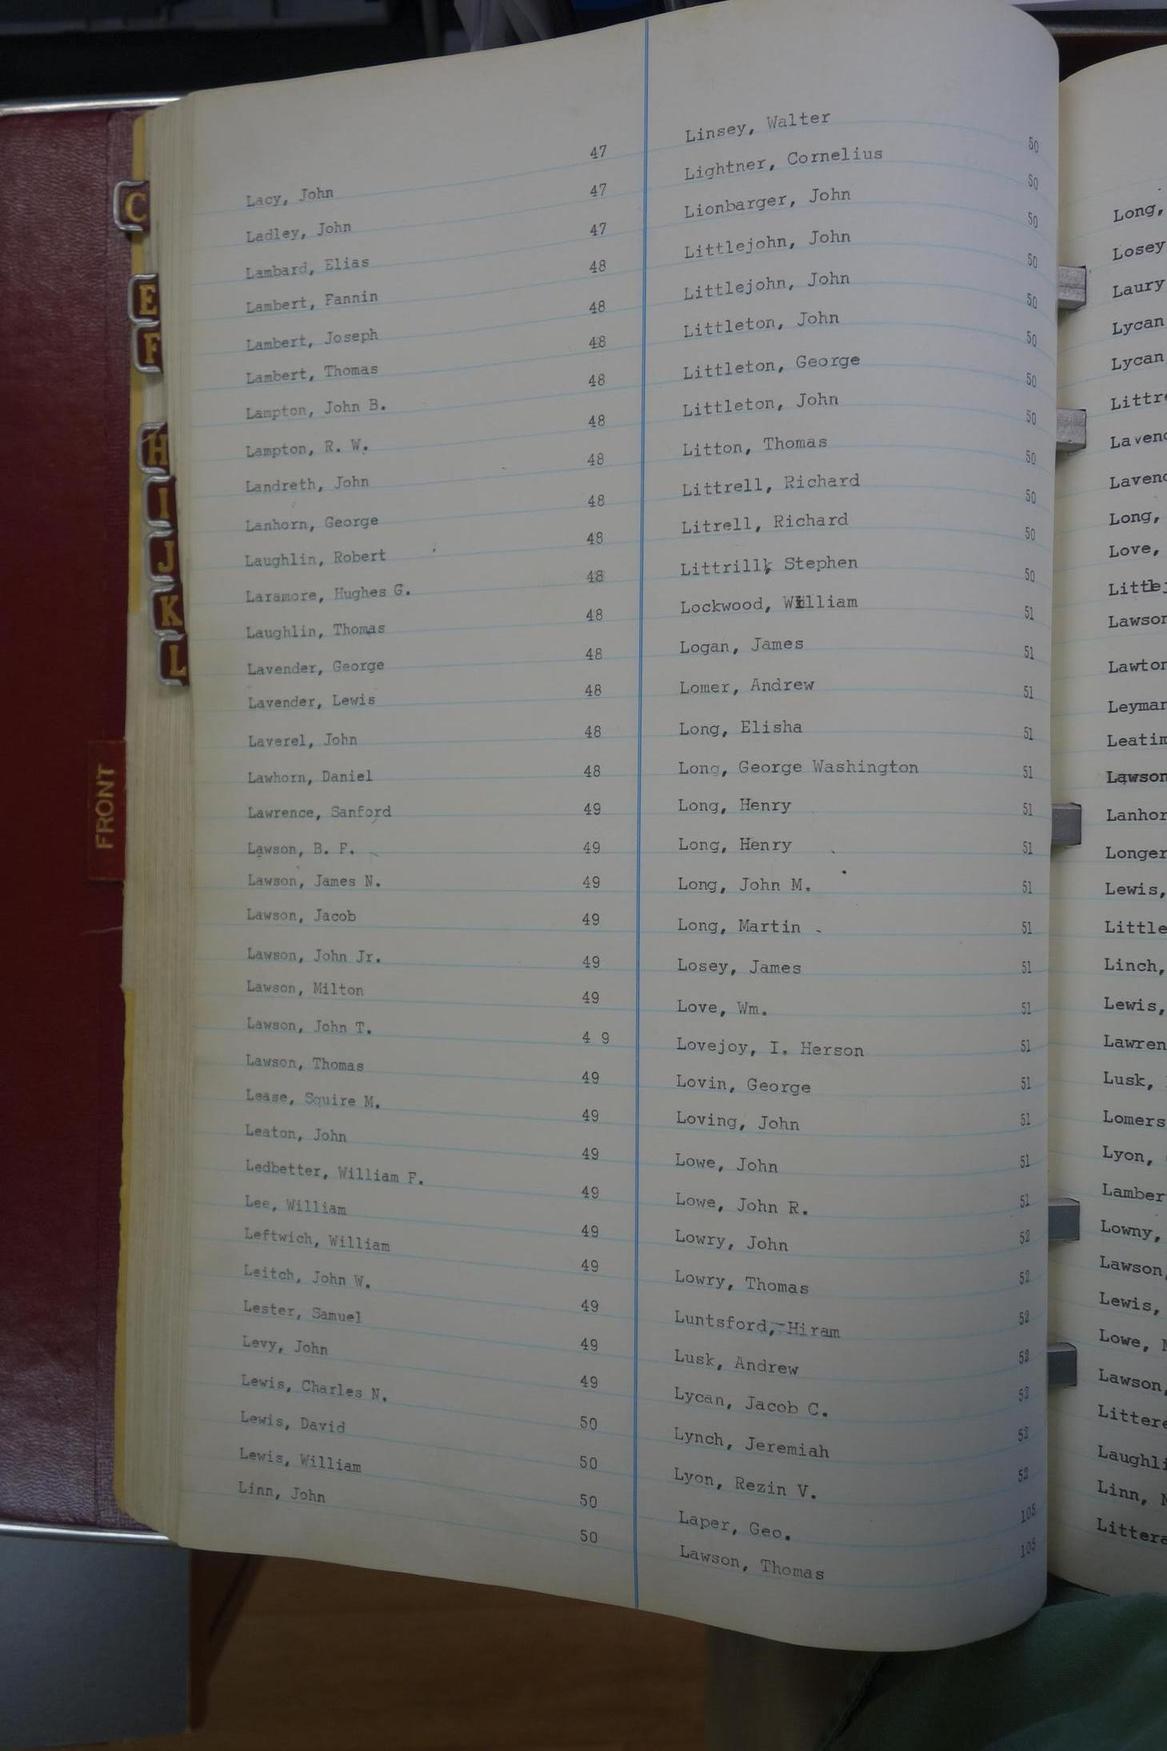 C
E
F
H
I
J
K
L
FRONT
Lacy, John 47
Ladley, John 47
Lambard, Elias 47
Lambert, Fannin 48
Lambert, Joseph 48
Lambert, Thomas 48
Lampton, John B. 48
Lampton, R. W. 48
Landreth, John 48
Lanhorn, George 48
Laughlin, Robert 48
Laramore, Hughes G. 48
Laughlin, Thomas 48
Lavender, George 48
Lavender, Lewis 48
Laverel, John 48
Lawhorn, Daniel 48
Lawrence, Sanford 49
Lawson, B. F. 49
Lawson, James N. 49
Lawson, Jacob 49
Lawson, John Jr. 49
Lawson, Milton 49
Lawson, John T. 4 9
Lawson, Thomas 49
Lease, Squire M. 49
Leaton, John 49
Ledbetter, William F. 49
Lee, William 49
Leftwich, William 49
Leitch, John W. 49
Lester, Samuel 49
Levy, John 49
Lewis, Charles N. 50
Lewis, David 50
Lewis, William 50
Linn, John 50
Linsey, Walter 50
Lightner, Cornelius 50
Lionbarger, John 50
Littlejohn, John 50
Littlejohn, John 50
Littleton, John 50
Littleton, George 50
Littleton, John 50
Litton, Thomas 50
Littrell, Richard 50
Litrell, Richard 50
Littrill, Stephen 50
Lockwood, William 51
Logan, James 51
Lomer, Andrew 51
Long, Elisha 51
Long, George Washington 51
Long, Henry 51
Long, Henry 51
Long, John M. 51
Long, Martin 51
Losey, James 51
Love, Wm. 51
Lovejoy, I. Herson 51
Lovin, George 51
Loving, John 51
Lowe, John 51
Lowe, John R. 51
Lowry, John 52
Lowry, Thomas 52
Luntsford, Hiram 52
Lusk, Andrew 52
Lycan, Jacob C. 52
Lynch, Jeremiah 52
Lyon, Rezin V. 52
Laper, Geo. 105
Lawson, Thomas 105
Long,
Losey
Laury
Lycan
Lycan
Long,
Love,
Lawson
Lewis,
Little
Linch,
Lewis,
Lusk,
Lomers
Lyon,
Lowny,
Lawson,
Lewis,
Lowe,
Lawson,
Linn,